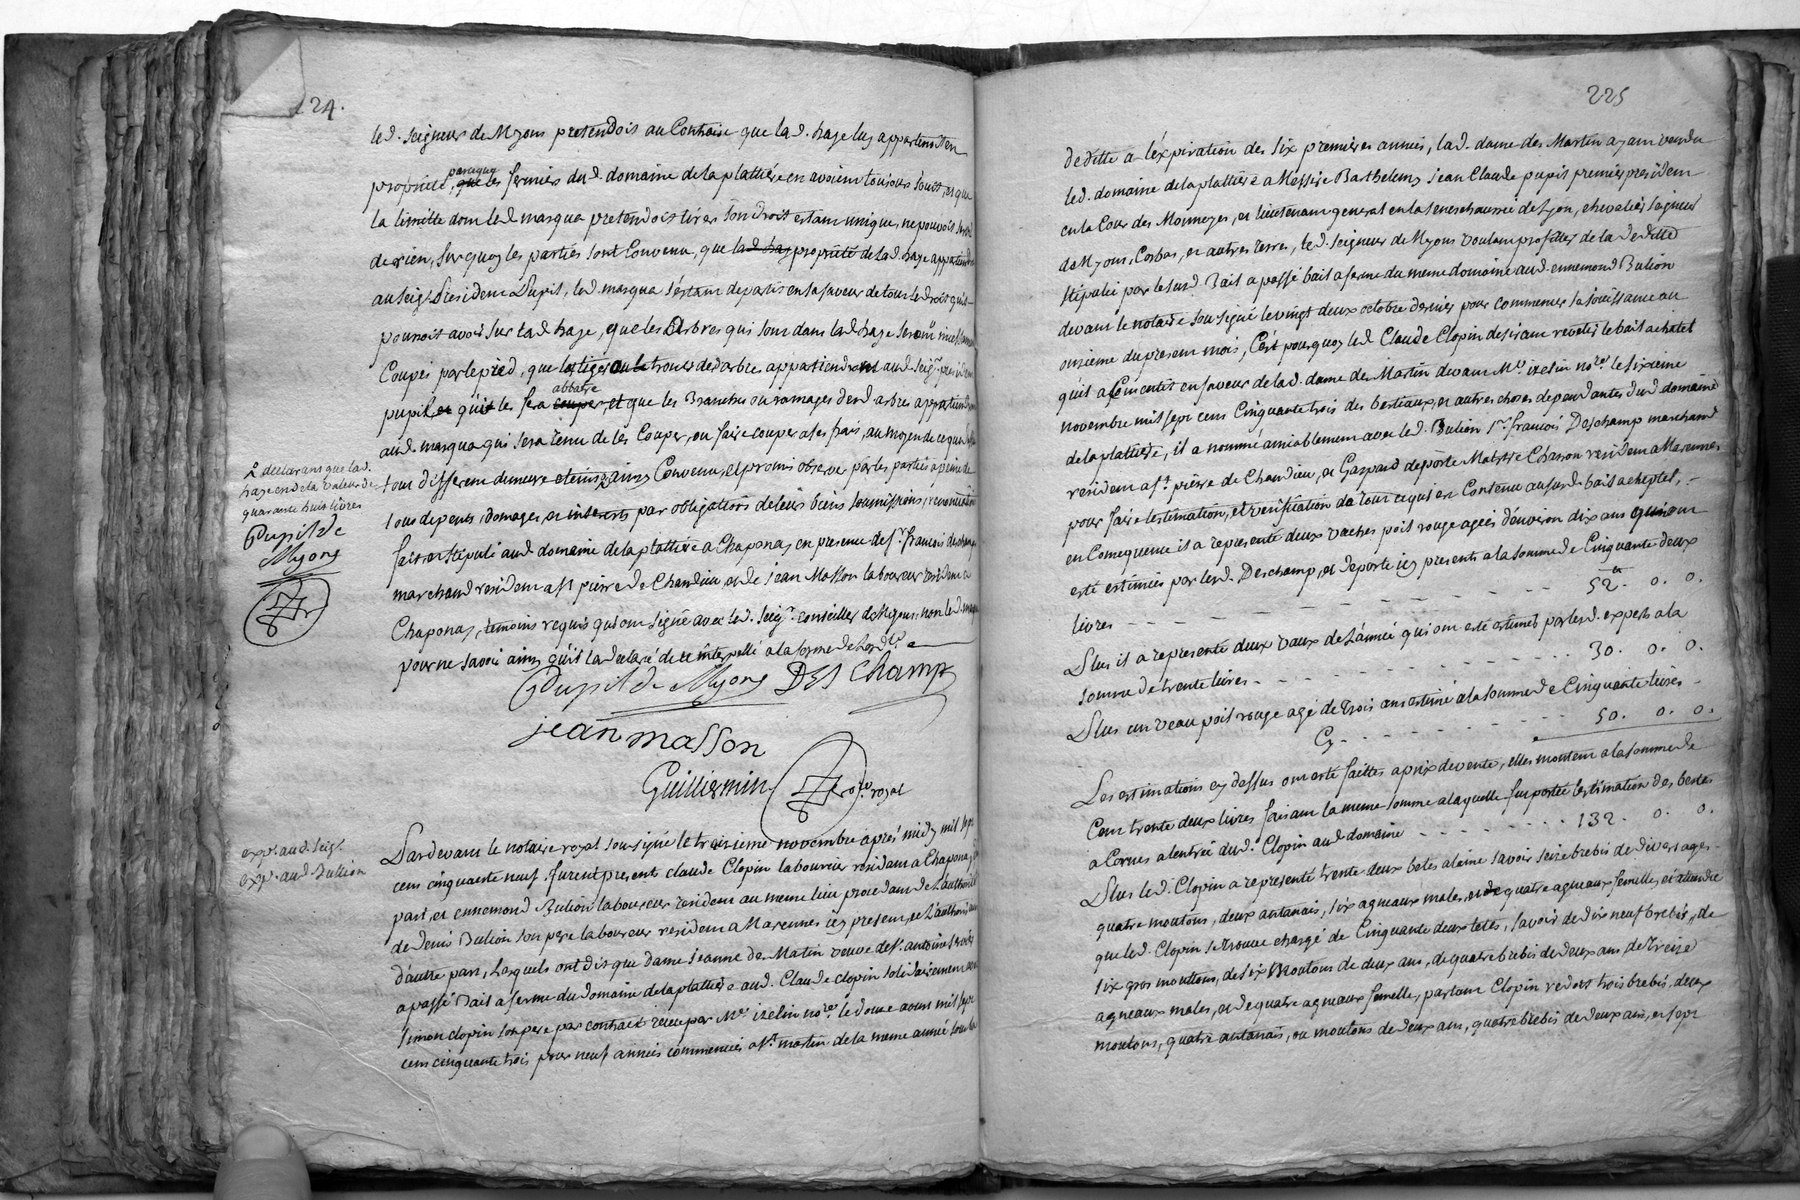 124.
led. seigneur de Myons pretendois au Contraire que lad. haye luy appartenoit en
propriété, parceque les fermiers dud. domaine de la plattiére en avoient toujours jouit, et que
la limitte dont led masqua pretendois tirer son droit estant unique, ne pouvoit servir
de rien, surquoy les partiés sont Convenu, que lad. hay propriété de lad. haye appartiendra
au seigr. President Pupil, led masqua s'éstant departis en sa faveur de tous le droit qu'il
pouroit avoir sur lad. haye, que les Arbres qui sont dans lad haye seront
Coupés par le pied, que les tiges ou le tronc desd arbre appartiendront aud. seigr. president
pupil et qui les fera couper abbatre, et que les Branches ou ramages desd arbres appartiendront
aud. masqua qui sera tenu de les Couper, ou faire couper a ses frais, au moyen de ce que
tout different demeure eteint, ainsy Convenu, et promis observer par les partiés a peine de
tous depents, domages, et interests par obligations de leurs biens soumissions, renonciations
fait et stipulé aud. domaine de la plattiére a Chaponay en presence de sr. francois deschamp
marchand resident a st pierre de Chandieu et de jean Masson laboureur resident a
Chaponay, temoins requis qui ont signé avec led. seigr. conseiller de Myons, non led. masqua
pour ne savoir ainsy qu'il la declaré de ce interpellé a la forme de lordce.
declarant que lad.
haye en de la valeur de
quarante huit livres
Pupil de
Myons
Pupil de Myons DES Champ
jean masson
Guilliermin nore. royal
expé. aud. seigr.
expé. aud. Bullion
Pardevant le notaire royal soussigné le treizieme novembre aprés midy mil sept
cent cinquante neuf. furent present claude Clopin laboureur resident a Chaponay,
part, et ennemond Bulion laboureur resident au meme lieu procedant de l'authorité
de denis Bulion son pere laboureur resident a Marennes icy present, et l'authorisant
d'autre part, Lesquels ont dis que dame jeanne de Martin veuve de sr. antoine
a passé Bail a ferme du domaine de la plattiére aud. Claude clopin solidairement avec
simon clopin son pere par contrait receu par Me. izelin nore. le douze aoust mil sept
cent cinquante trois pour neuf années commencées a st. martin de la meme année sous la
225
deditte a l'éxpiration des six premiéres années, lad. dame des Martin ayant vendu
led. domaine de la plattiere a Messire Barthelemy jean Claude pupil premier president
en la Cour des Monnoyes, et lieutenant general en la seneschaussée de Lyon, chevalier seigneur
de Myons, Corbas, et autres terres, led. seigneur de Myons voulant profiter de la deditte
stipulée par le susd Bail a passé bail a ferme du meme domaine aud. ennemond Bulion
devant le notaire soussigné le vingt deux octobre dernier pour commencer sa jouissance au
onzieme du present mois, C'est pourquoy led. Claude Clopin desirant reveter le bail a chetel
qu'il a Consentit en faveur de lad. dame de Martin devant Me. izelin nore. le sixieme
novembre mil sept cent Cinquante trois des bestiaux, et autres choses dependantes dud domaine
de la plattiére, il a nommé amiablement avec led. Bulion sr. francois Deschamp marchand
resident a st. pierre de Chandieu, et Gaspard deporte Maistre Charon resident a Marennes
pour faire lestimation, et verification de tout ce qui est Contenu au surd. bail a cheptel,
en Consequence il a representé deux vaches poil rouge ageés d'environ dix ans qui ont
esté estimées par lesd. Deschamp, et deporte icy presents a la somme de Cinquante deux
livres - - - - - - - - 52tt. 0. 0.
Plus il a representé deux vaux de l'année qui ont esté estimés par lesd. experts a la
somme de trente livres - - - - - - - 30. 0. 0.
Plus un veau poil rouge agé de trois ans estimé a la somme de Cinquante livres
Cy - - - - - - 50. 0. 0.
Les estimations cy dessus ont esté faittes a prix de vente, elles montent a la somme de
Cent trente deux livres faisant la meme somme a laquelle fut portée lestimation des bestes
a Cornes a l'entreé dud. Clopin aud domaine - - - - - - - 132. 0. 0.
Plus led. Clopin a representé trente deux betes a laine savoir seize brebis de divers ages
quatre moutons, deux antanais, six agneaux males, et de quatre agneaux femelles, et attendu
que led. Clopin se trouve chargé de Cinquante deux tetes, savoir de dix neuf brebis, de
six gros mouttons, de six Moutons de deux ans, de quatre brebis de deux ans, de treize
agneaux males, et de quatre agneaux femelle, partant Clopin redoit trois brebis, deux
moutons, quatre antanais, ou moutons de deux ans, quatre brebis de deux ans, et sept